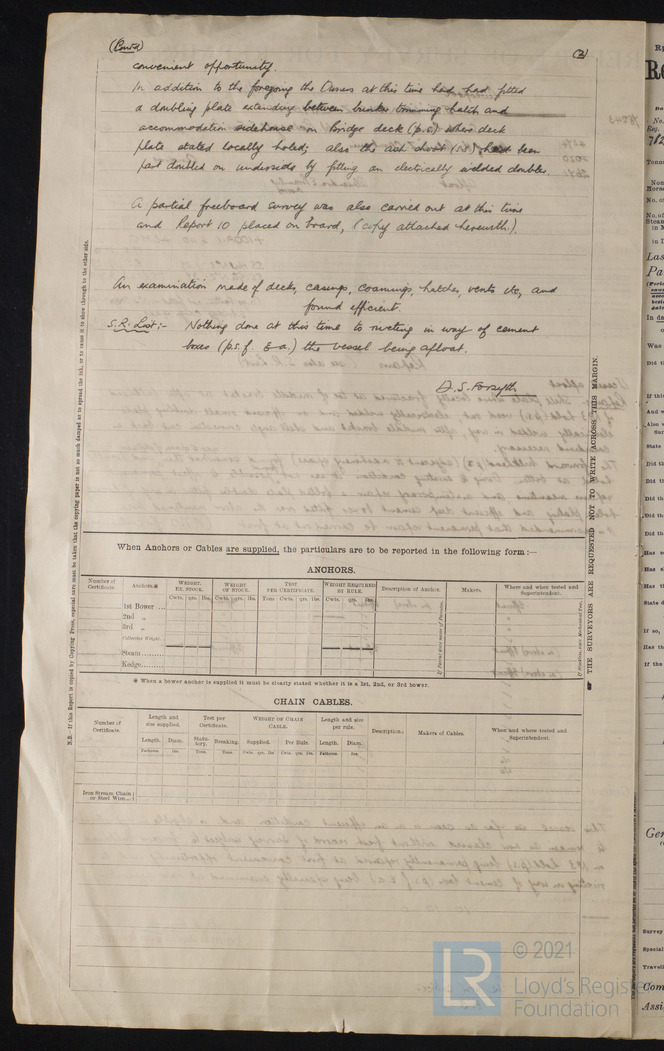 (Contd) (2)
convenient opportunity.
In addition to the foregoing the Owners at this time had had fitted
a doubling plate extending between bunker trimming hatch and
accommodation sidehouse on Bridge deck (p.s.) where deck
plate stated locally holed; also the ash shoot (s.s.) had been
part doubled on underside by fitting an electrically welded doubler.
A partial freeboard survey was also carried out at this time
and Report 10 placed on board, (copy attached herewith).
An examination made of decks, casings, coamings, hatches, vents etc, and
found efficient.
S.R. List:- Nothing done at this time to riveting in way of cement
boxes (p.s.f. & a.) the vessel being afloat.
D. S. Forsyth
When Anchors or Cables are supplied, the particulars are to be reported in the following form :—
ANCHORS.
Number of Certificate. Anchors.* WEIGHT, EX. STOCK. WEIGHT OF STOCK. TEST PER CERTIFICATE. WEIGHT REQUIRED BY RULE. Description of Anchor. Makers. Where and when tested and Superintendent.
Cwts. qrs. lbs. Cwts. qrs. lbs. Tons Cwts. qrs. lbs. Cwts. qrs. lbs.
1st Bower ...
2nd „
3rd „
Collective Weight.
Stream
Kedge
* When a bower anchor is supplied it must be clearly stated whether it is a 1st, 2nd, or 3rd bower.
CHAIN CABLES.
Number of Certificate. Length and size supplied. Test per Certificate. WEIGHT OF CHAIN CABLE. Length and size per rule. Description. Makers of Cables. When and where tested and Superintendent.
Length. Diam. Statutory. Breaking. Supplied. Per Rule. Length. Diam.
Fathoms. Ins. Tons. Tons. Cwts. qrs. lbs Cwts. qrs. lbs. Fathoms. Ins.
Iron Stream Chain or Steel Wire...
N.B. If this Report is copied by Copying Press, especial care must be taken that the copying paper is not so much damped as to spread the ink, or to cause it to show through to the other side.
THE SURVEYORS ARE REQUESTED NOT TO WRITE ACROSS THIS MARGIN.
LR © 2021
Lloyd's Register
Foundation